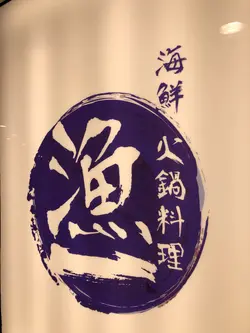 海鮮火鍋料理
漁